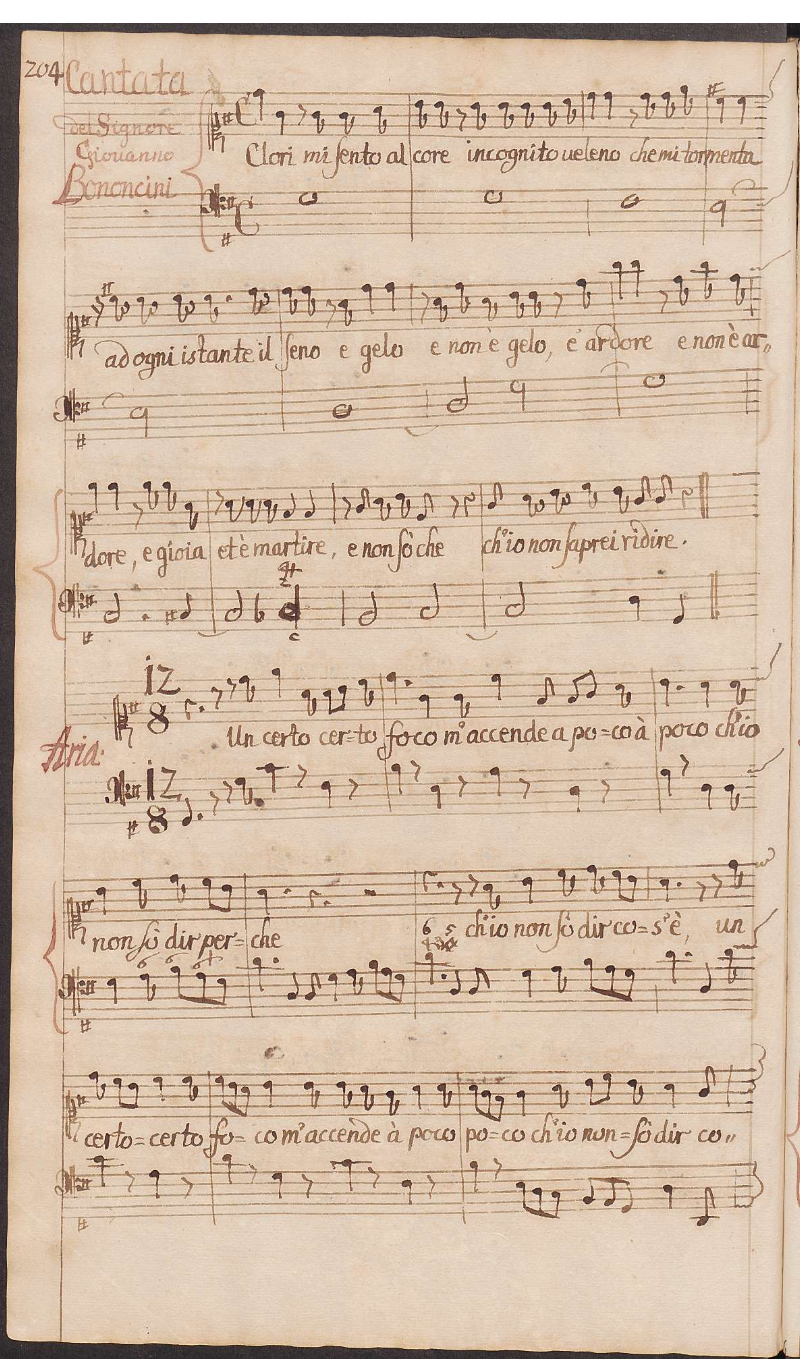 204 Cantata
del Signore
Giouanno
Bononcini
Clori mi sento al core incognito ueleno che mi tormenta
ad ogni istante il seno e gelo e non è gelo, è ardore e non è ar,,
dore, e gioia et è martire, e non sò che ch'io non saprei ridire.
Aria.
12
8
Un certo cer=to foco m'accende a po=co à poco ch'io
12
8
non sò dir per=che ch'io non sò dir co=s'è, un
6 5
certo=certo fo=co m'accende à poco po=co ch'io non=sò dir co,,